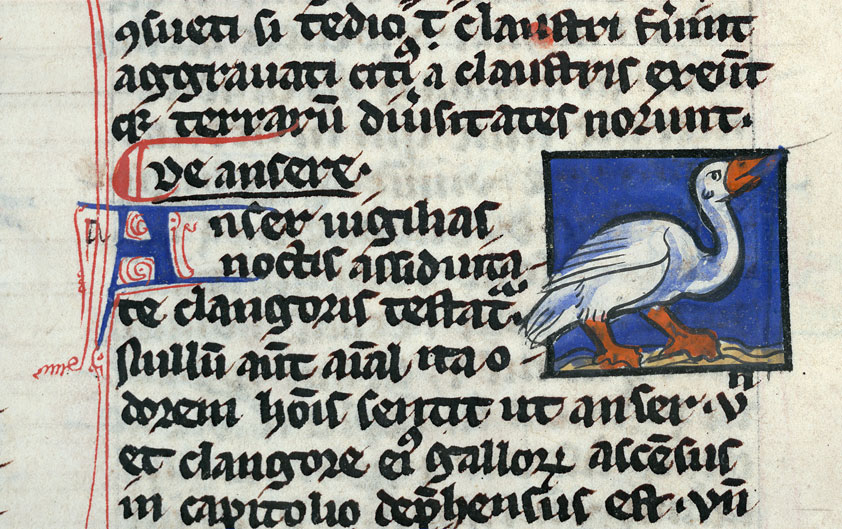 ꝯsueti si tedio t̄ claustri fūint
aggrauati citꝰ a claustris exeūt
qͥ terrarū diůsitates norunt.
De ansere.
Anser uigilias
noctis assiduita
te clangoris testat᷑.
Nullū aūt aīal ita o
dorem hōīs sentit ut anser. vn̄
et clangore eiꝰ galloꝝ ascēsus
in capitolio dep̄hensus est. vn̄